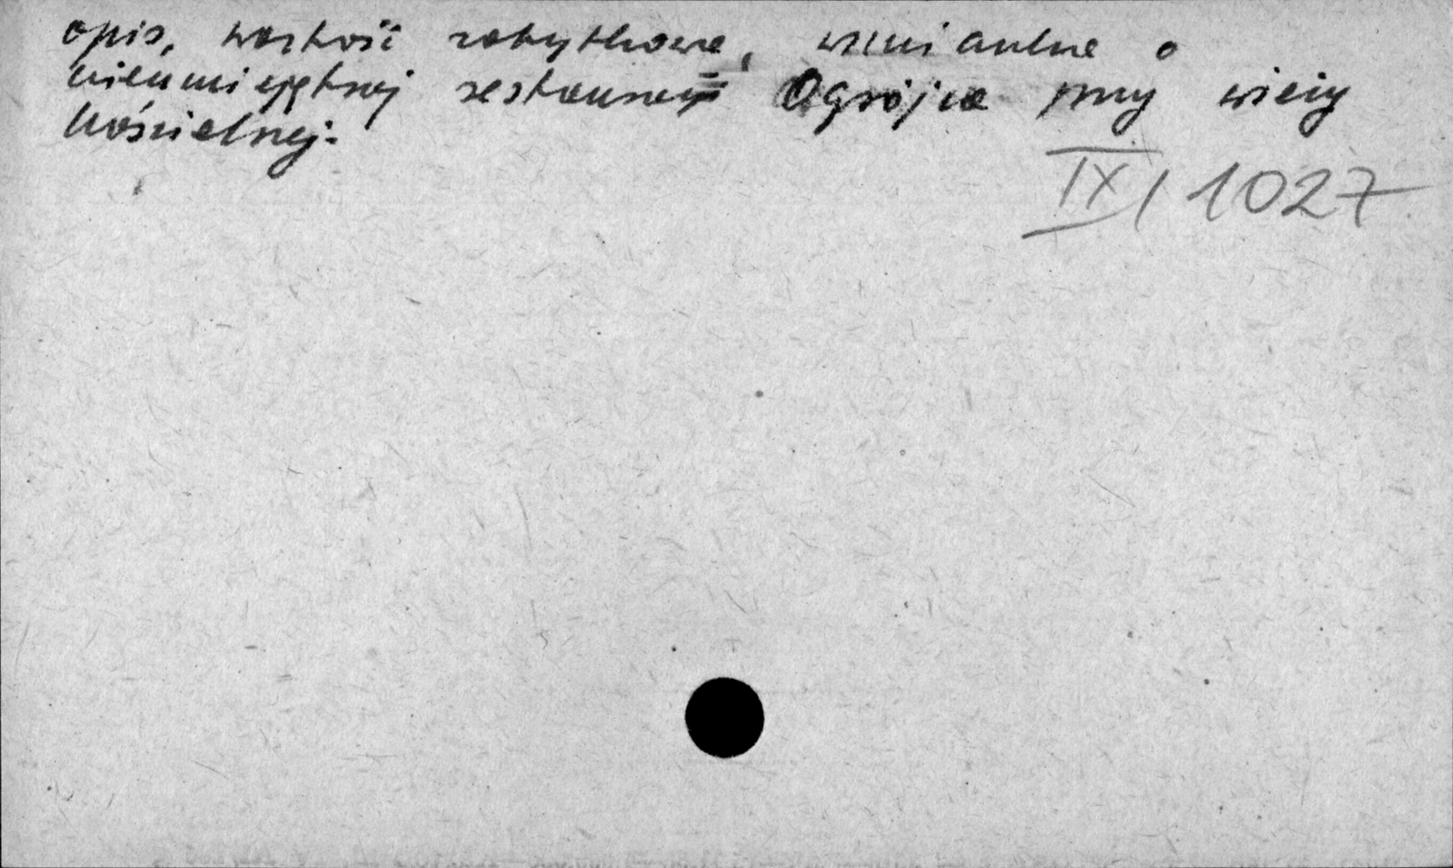 opis, wartość zabytkowa, wzmianka o
nieumiejętnej restauracji Ogrójca przy wieży
kościelnej.
IX/1027